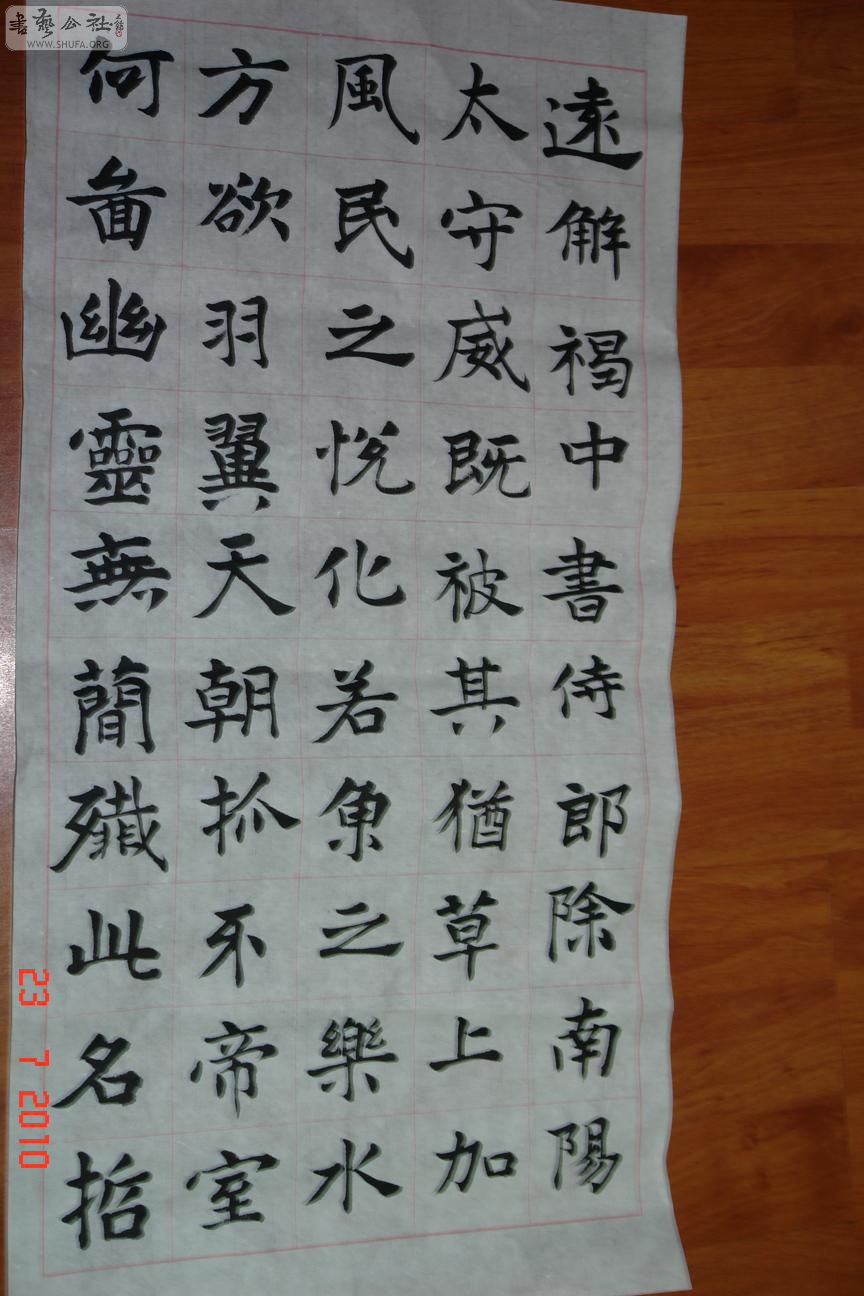 遠解褐中書侍郎除南陽
太守威既被其猶草上加
風民之悅化若魚之樂水
方欲羽翼天朝抓牙帝室
何啚幽靈無簡殲此名哲
書藝公社
WWW.SHUFA.ORG
23 7 2010